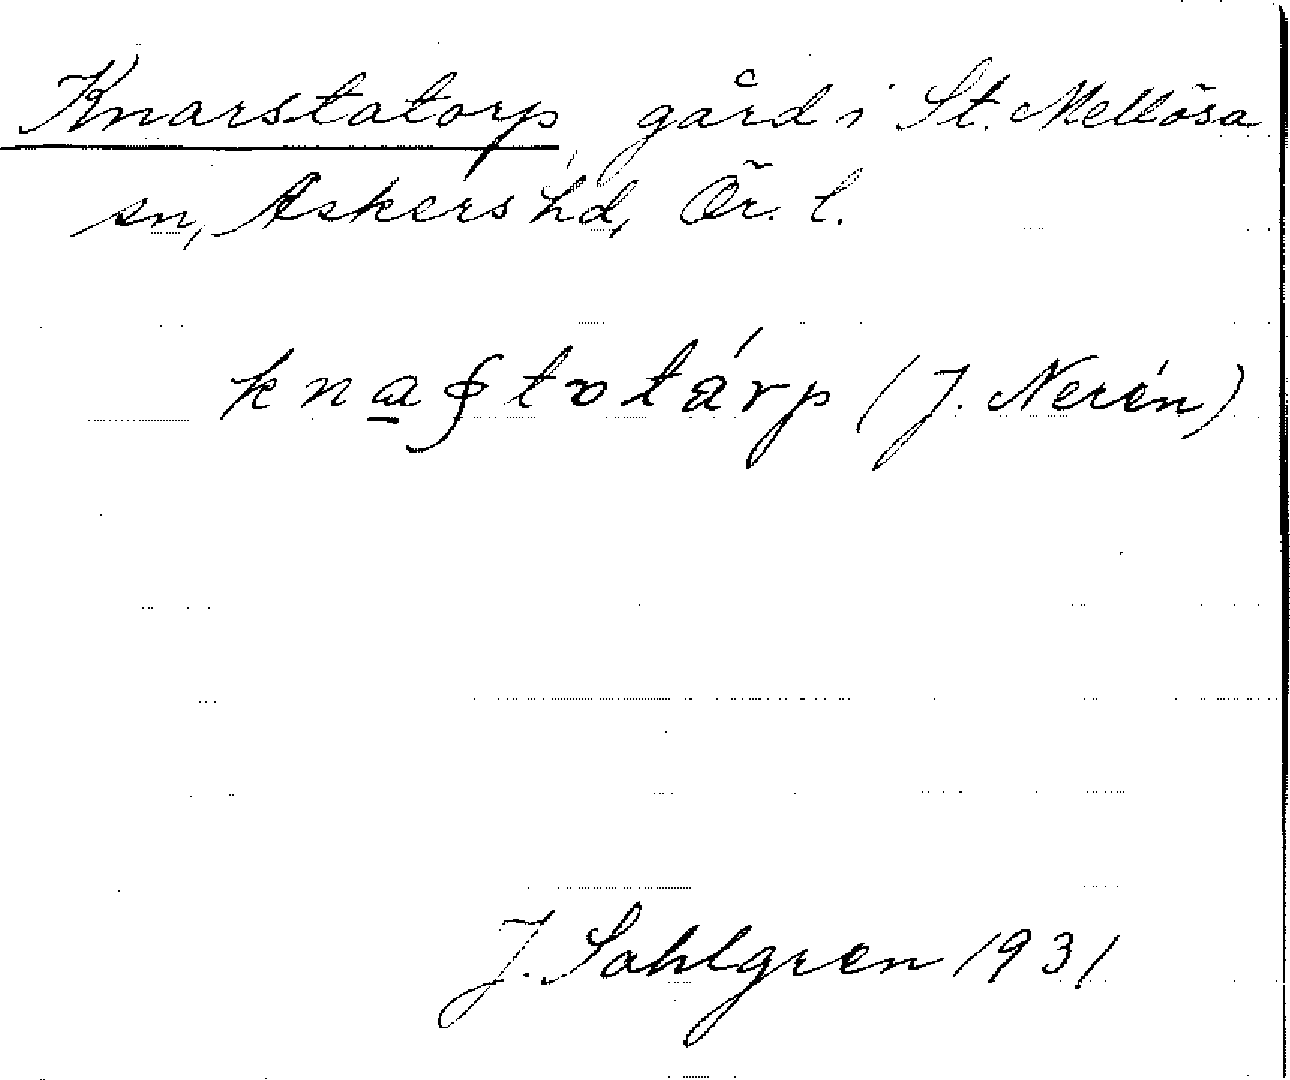 Knarstatorp, gård i St. Mellösa
sn, Askers hd, Ör. l.
(J. Nerén)
J. Sahlgren 1931